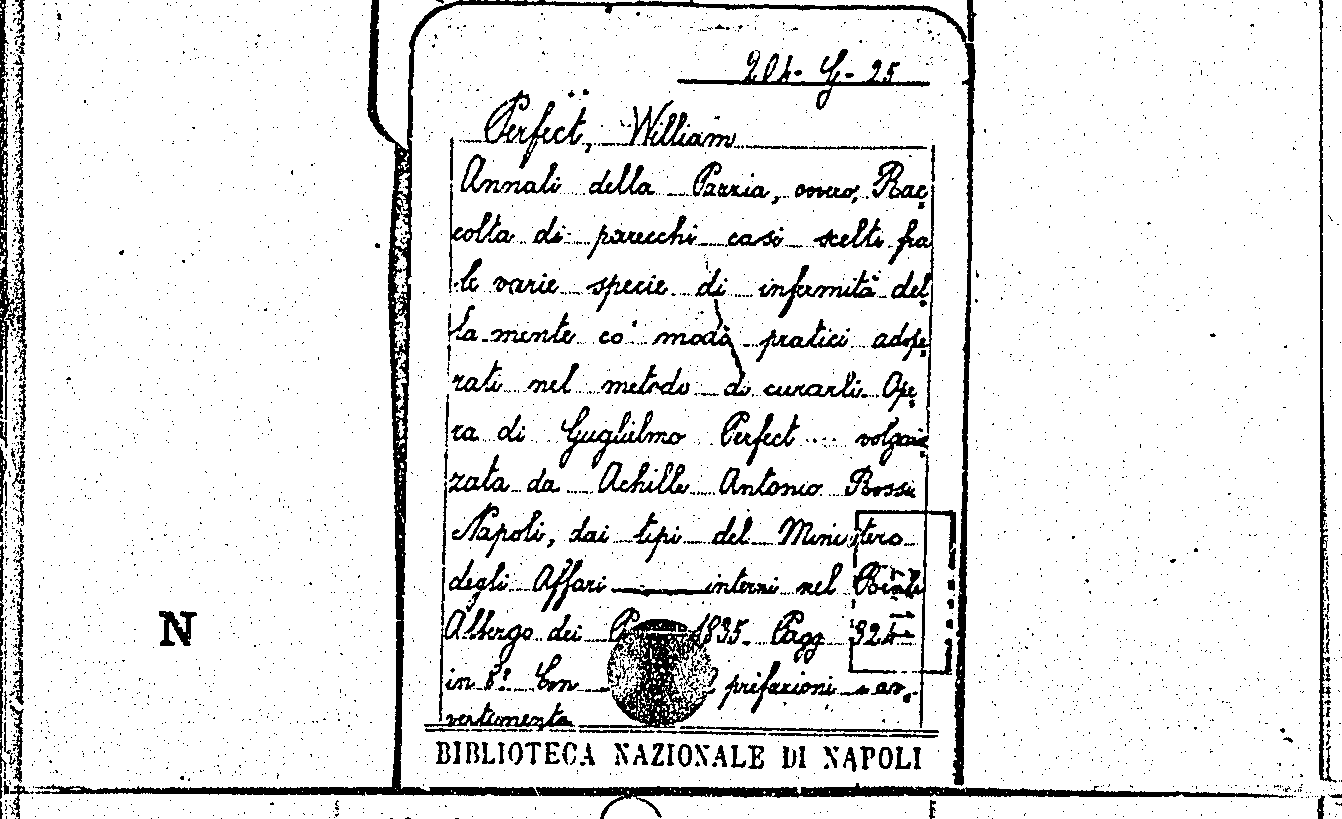 204-G-25
Perfect, William
Annali della Pazzia, ovvero, Rac-
colta di parecchi casi scelti fra
le varie specie di infermità del-
la mente co' modi pratici adope-
rati nel metodo di curarli. Ope-
ra di Guglielmo Perfect ... volgariz-
zata da Achille Antonio Rossi
Napoli, dai tipi del Ministero
degli Affari interni nel Reale
Albergo dei 1835. Pagg 324
in 8° Con prefazioni e av-
vertimento
N
BIBLIOTECA NAZIONALE DI NAPOLI